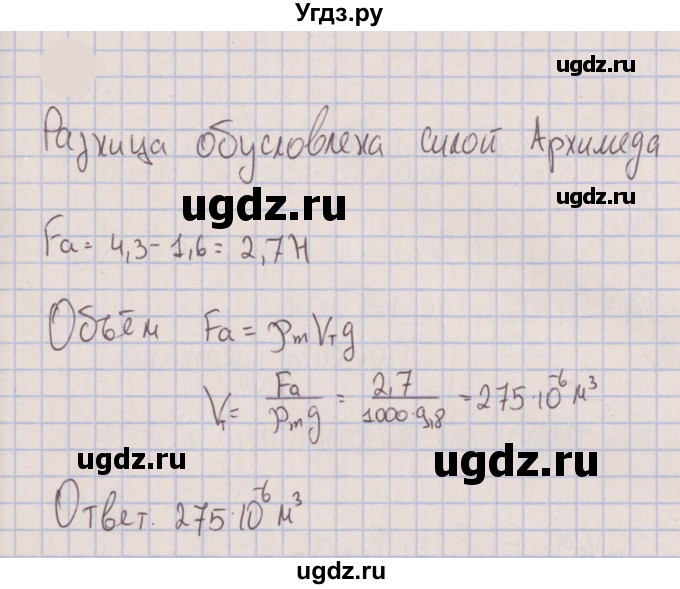 Угдз.ру
ugdz.ru
Разница обусловлена силой Архимеда
ugdz.ru
ugdz.ru
Fa = 4,3 - 1,6 = 2,7 Н
Объём Fa = ρmVтg
Vт = Fa/ρmg = 2,7/1000·9,8 = 275·10⁻⁶ м³
ugdz.ru
ugdz.ru
Ответ. 275·10⁻⁶ м³
ugdz.ru